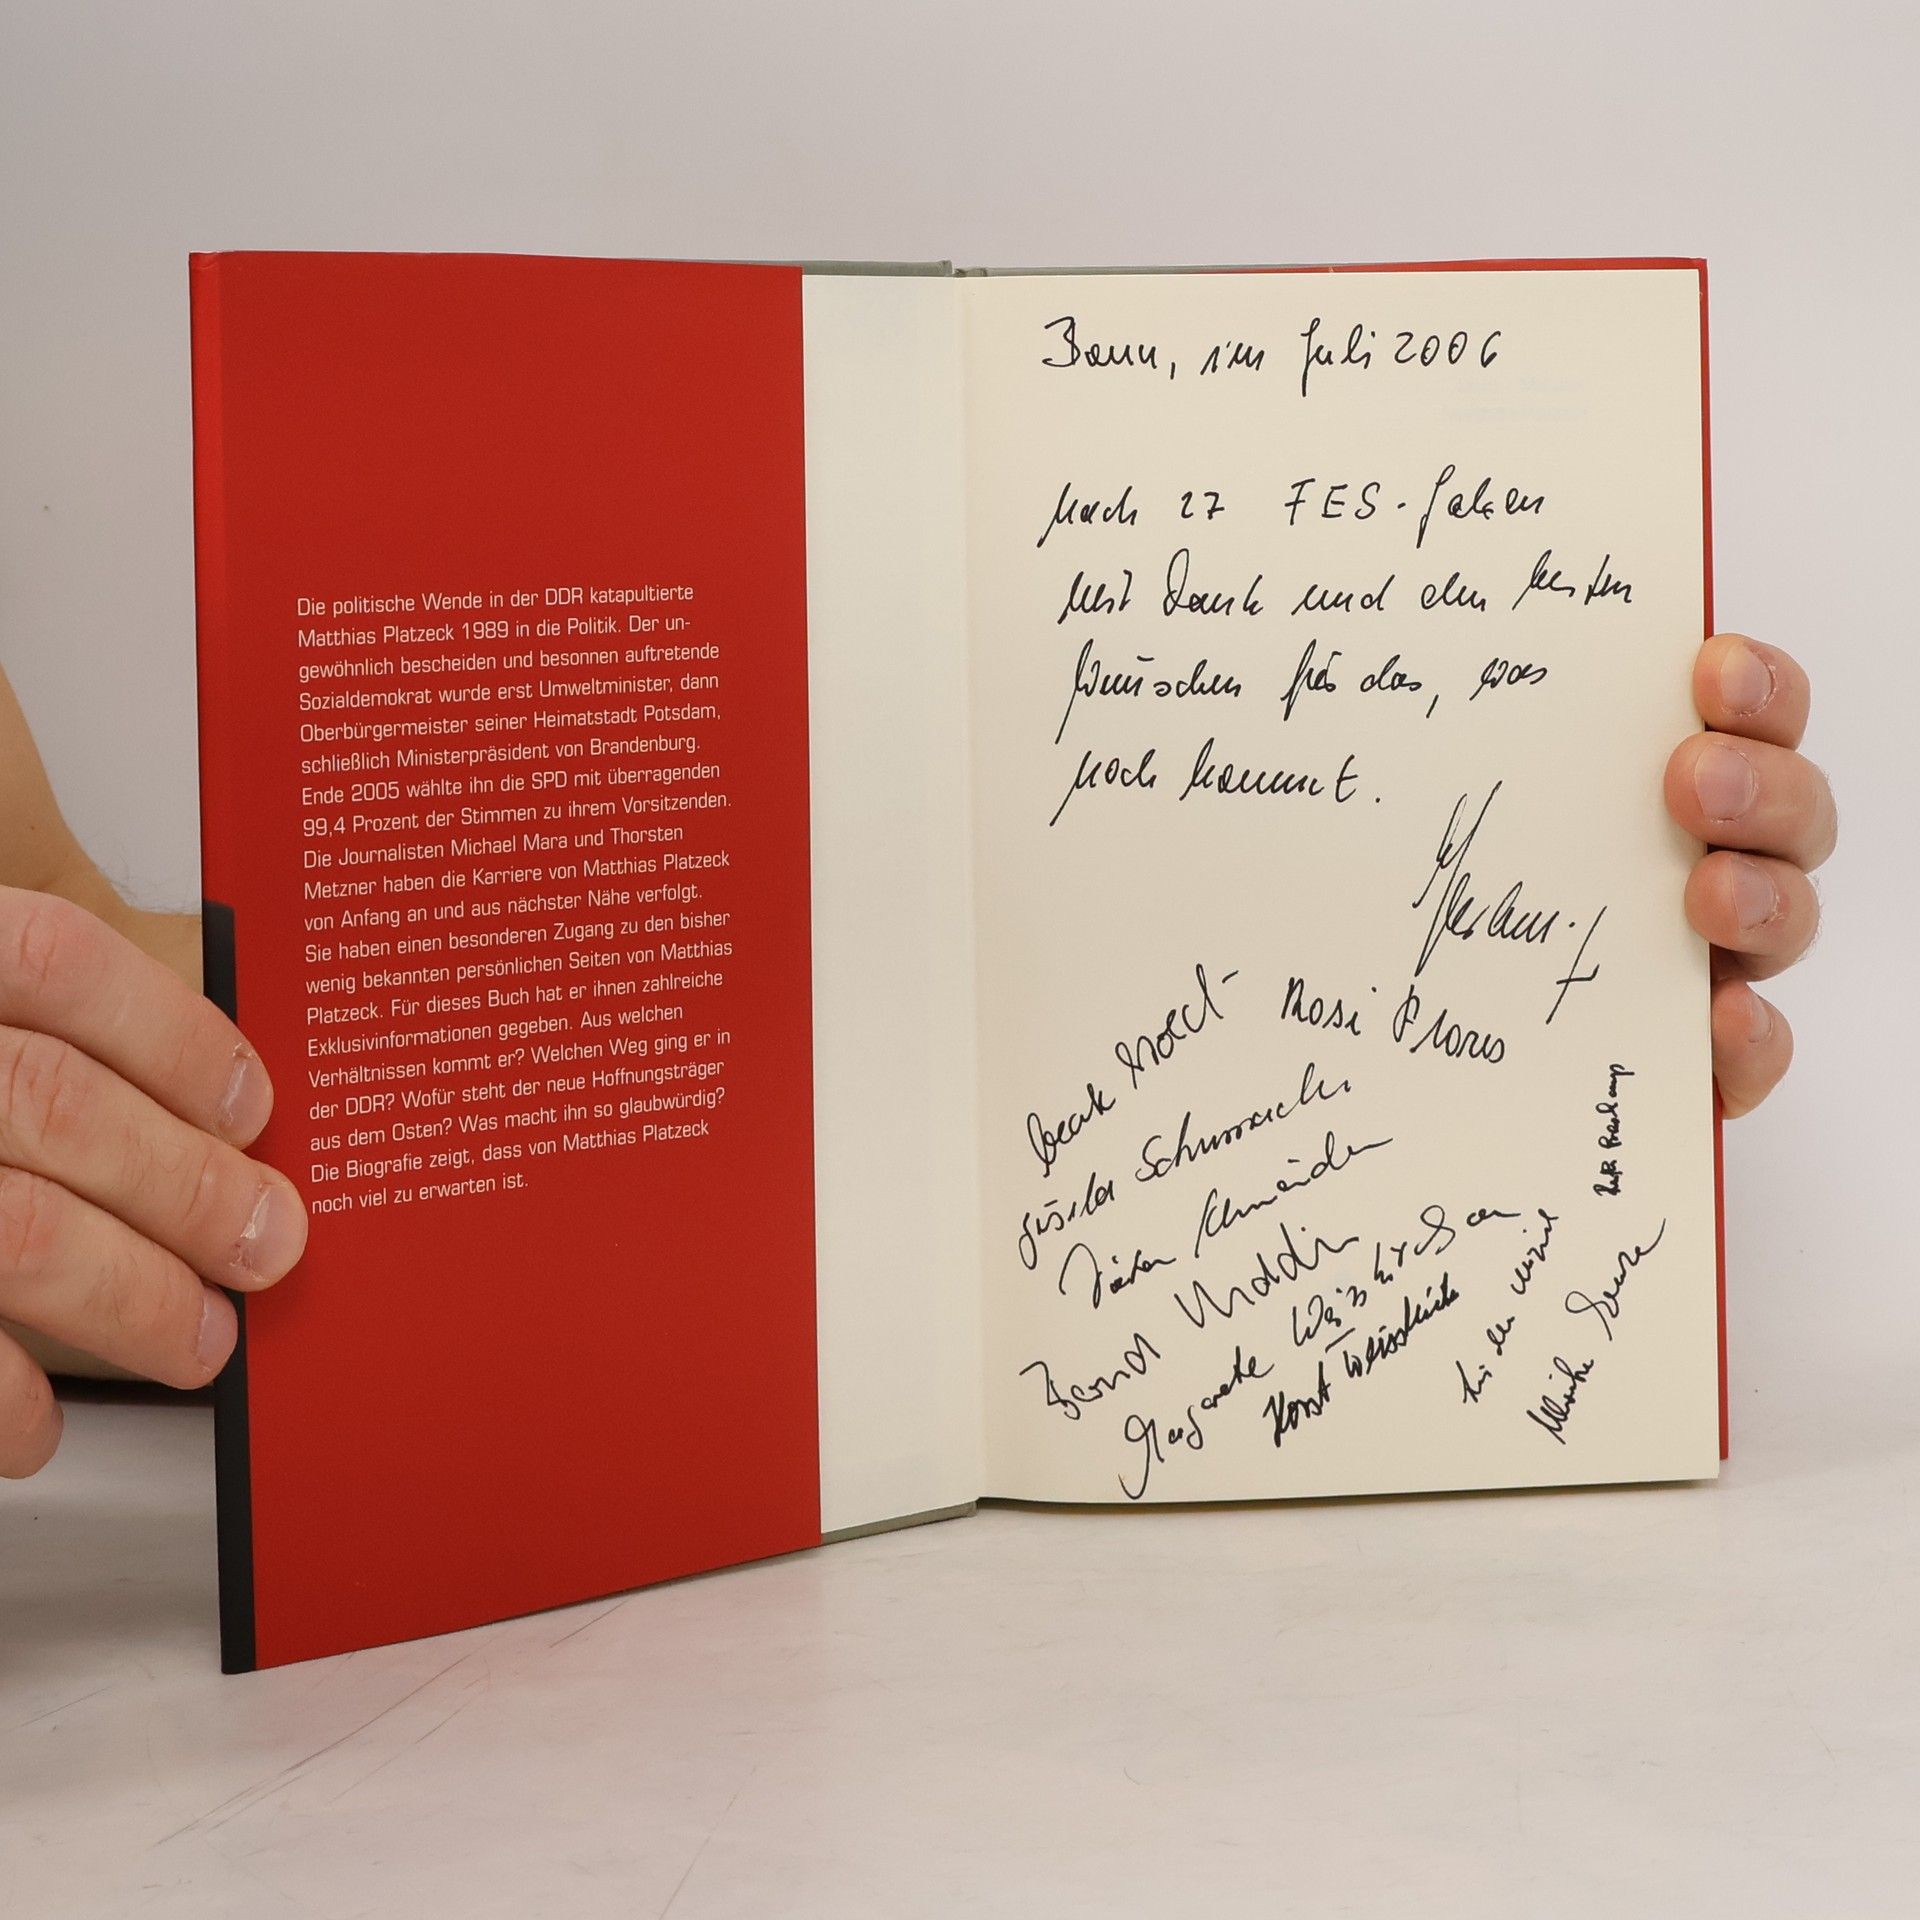 Die politische Wende in der DDR katapultierte
Matthias Platzeck 1989 in die Politik. Der un-
gewöhnlich bescheiden und besonnen auftretende
Sozialdemokrat wurde erst Umweltminister, dann
Oberbürgermeister seiner Heimatstadt Potsdam,
schließlich Ministerpräsident von Brandenburg.
Ende 2005 wählte ihn die SPD mit überragenden
99,4 Prozent der Stimmen zu ihrem Vorsitzenden.
Die Journalisten Michael Mara und Thorsten
Metzner haben die Karriere von Matthias Platzeck
von Anfang an und aus nächster Nähe verfolgt.
Sie haben einen besonderen Zugang zu den bisher
wenig bekannten persönlichen Seiten von Matthias
Platzeck. Für dieses Buch hat er ihnen zahlreiche
Exklusivinformationen gegeben. Aus welchen
Verhältnissen kommt er? Welchen Weg ging er in
der DDR? Wofür steht der neue Hoffnungsträger
aus dem Osten? Was macht ihn so glaubwürdig?
Die Biografie zeigt, dass von Matthias Platzeck
noch viel zu erwarten ist.
Bonn, im Juli 2006
Nach 27 FES-Jahren
mit Dank und den besten
Wünschen für das, was
noch kommt.
Rosi Flores
Gisela
Schneider
Bernd
Margarete
Horst
Ulrike